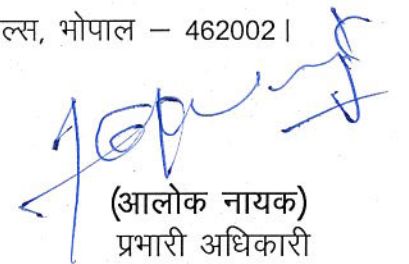 ल्स, भोपाल – 462002।
(आलोक नायक)
प्रभारी अधिकारी